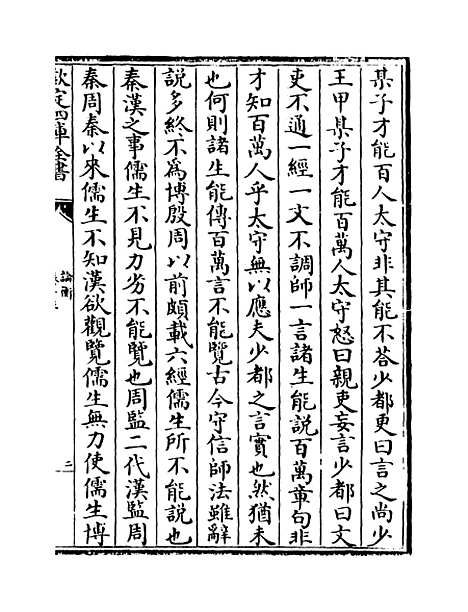 某子才能百人太守非其能不荅少都更曰言之尚少
王甲某子才能百萬人太守怒曰親吏妄言少都曰文
吏不通一經一文不調師一言諸生能說百萬章句非
才知百萬人乎太守無以應夫少都之言實也然猶未
也何則諸生能傳百萬言不能覽古今守信師法雖辭
說多終不爲博殷周以前頗載六經儒生所不能說也
秦漢之事儒生不見力劣不能覽也周監二代漢監周
秦周秦以來儒生不知漢欲觀覽儒生無力使儒生博
欽定四庫全書
論衡
三